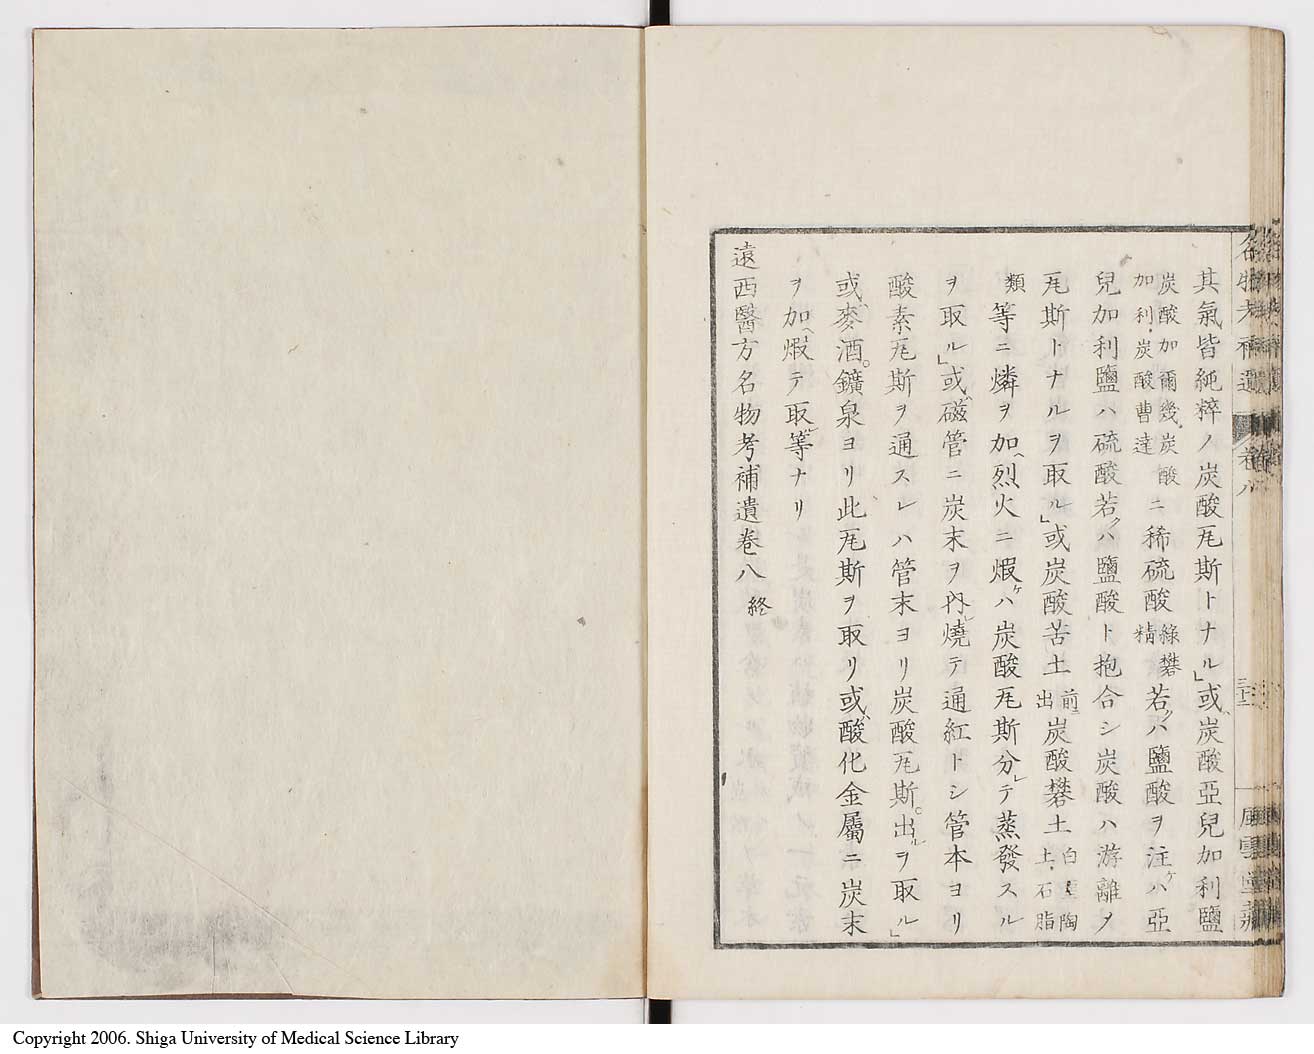 其氣皆純粹ノ炭酸瓦斯トナル」或ハ炭酸亞兒加利鹽
炭酸加爾幾、炭酸加利、炭酸曹達ニ稀硫酸綠礬精若クハ鹽酸ヲ注ケハ亞
兒加利鹽ハ硫酸若クハ鹽酸ト抱合シ炭酸ハ游離メ
瓦斯トナルヲ取ル」或炭酸苦土前ニ出炭酸礬土白堊、陶土、石脂
類等ニ燐ヲ加ヘ烈火ニ煆ケハ炭酸瓦斯分レテ蒸發スル
ヲ取ル」或ハ磁管ニ炭末ヲ內レ燒テ通紅トシ管本ヨリ
酸素瓦斯ヲ通スレハ管末ヨリ炭酸瓦斯出ルヲ取ル」
或ハ麥酒。鑛泉ヨリ此瓦斯ヲ取リ或ハ酸化金屬ニ炭末
ヲ加ヘ煆テ取ル等ナリ
遠西醫方名物考補遺卷八終
名物考補遺
卷八
三十二
風雲堂藏
Copyright 2006. Shiga University of Medical Science Library